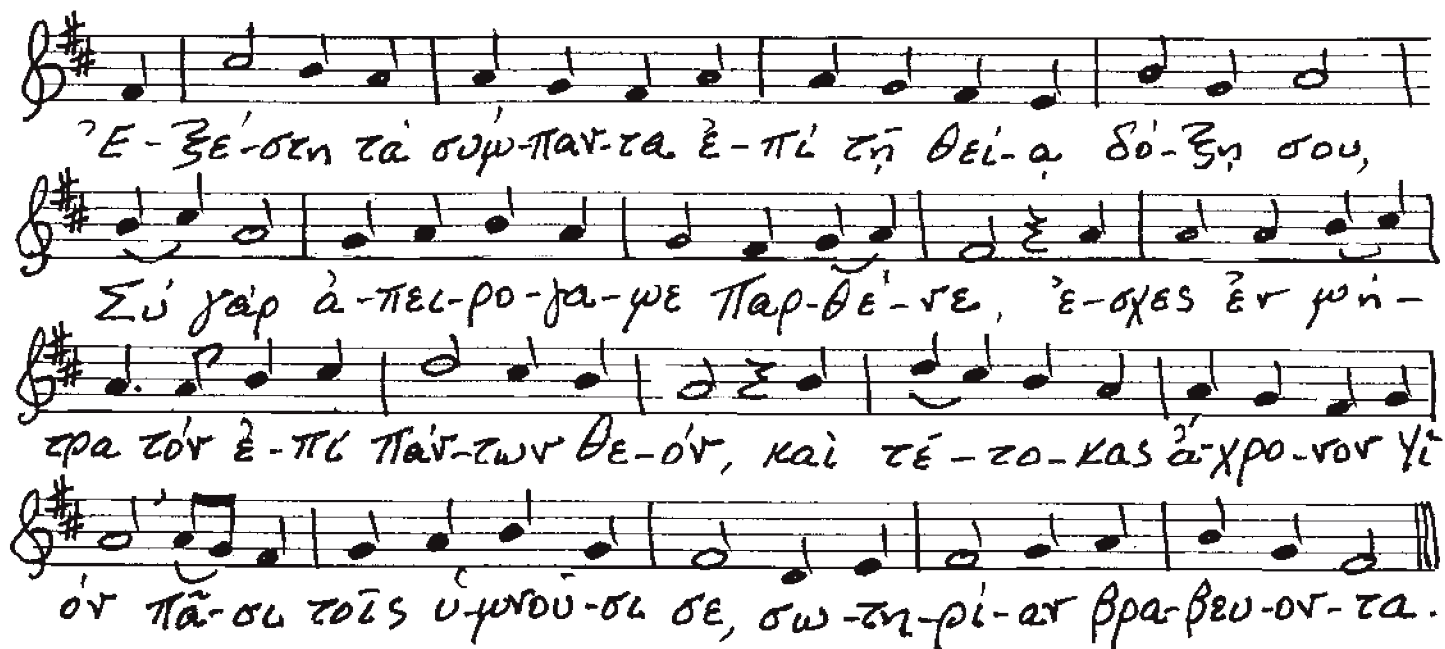 Ἐ-ξέ-στη τά σύμ-παν-τα ἐ-πί τῇ θεί-ᾳ δό-ξῃ σου,
Σύ γάρ ἀ-πει-ρο-γα-με Παρ-θέ-νε, ἔ-σχες ἐν μή-
τρα τόν ἐ-πί πάν-των Θε-όν, καί τέ-το-κας ἄ-χρο-νον Υἱ
όν πᾶ-σι τοῖς ὑ-μνοῦ-σι σε, σω-τη-ρί-αν βρα-βευ-ον-τα.